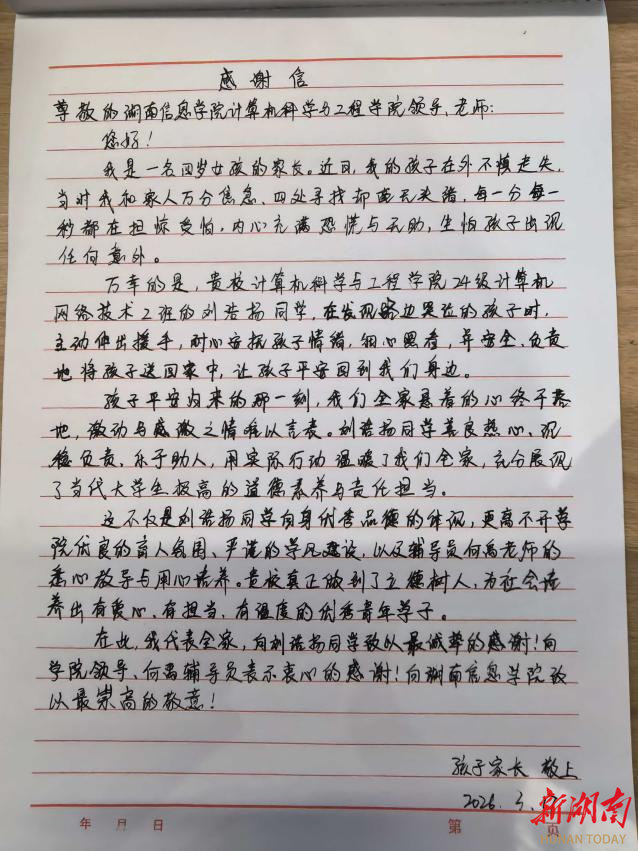 感谢信
尊敬的湖南信息学院计算机科学与工程学院领导、老师：
您好！
我是一名四岁女孩的家长。近日，我的孩子在外不慎走失，
当时我和家人万分焦急、四处寻找却毫无头绪，每一分每一
秒都在担惊受怕，内心充满恐慌与无助，生怕孩子出现
任何意外。
万幸的是，贵校计算机科学与工程学院24级计算机
网络技术2班的刘浩扬同学，在发现路边哭泣的孩子时，
主动伸出援手，耐心安抚孩子情绪，细心照看，并安全、负责
地将孩子送回家中，让孩子平安回到我们身边。
孩子平安归来的那一刻，我们全家悬着的心终于落
地，激动与感激之情难以言表。刘浩扬同学善良热心、沉
稳负责、乐于助人，用实际行动温暖了我们全家，充分展现
了当代大学生极高的道德素养与责任担当。
这不仅是刘浩扬同学自身优秀品德的体现，更离不开学
院优良的育人氛围、严谨的学风建设，以及辅导员何禹老师的
悉心教导与用心培养。贵校真正做到了立德树人，为社会培
养出有爱心、有担当、有温度的优秀青年学子。
在此，我代表全家，向刘浩扬同学致以最诚挚的感谢！向
学院领导、何禹辅导员表示衷心的感谢！向湖南信息学院致
以最崇高的敬意！
孩子家长 敬上
2026.3.
年 月 日 第 页
新湖南
HUNAN TODAY